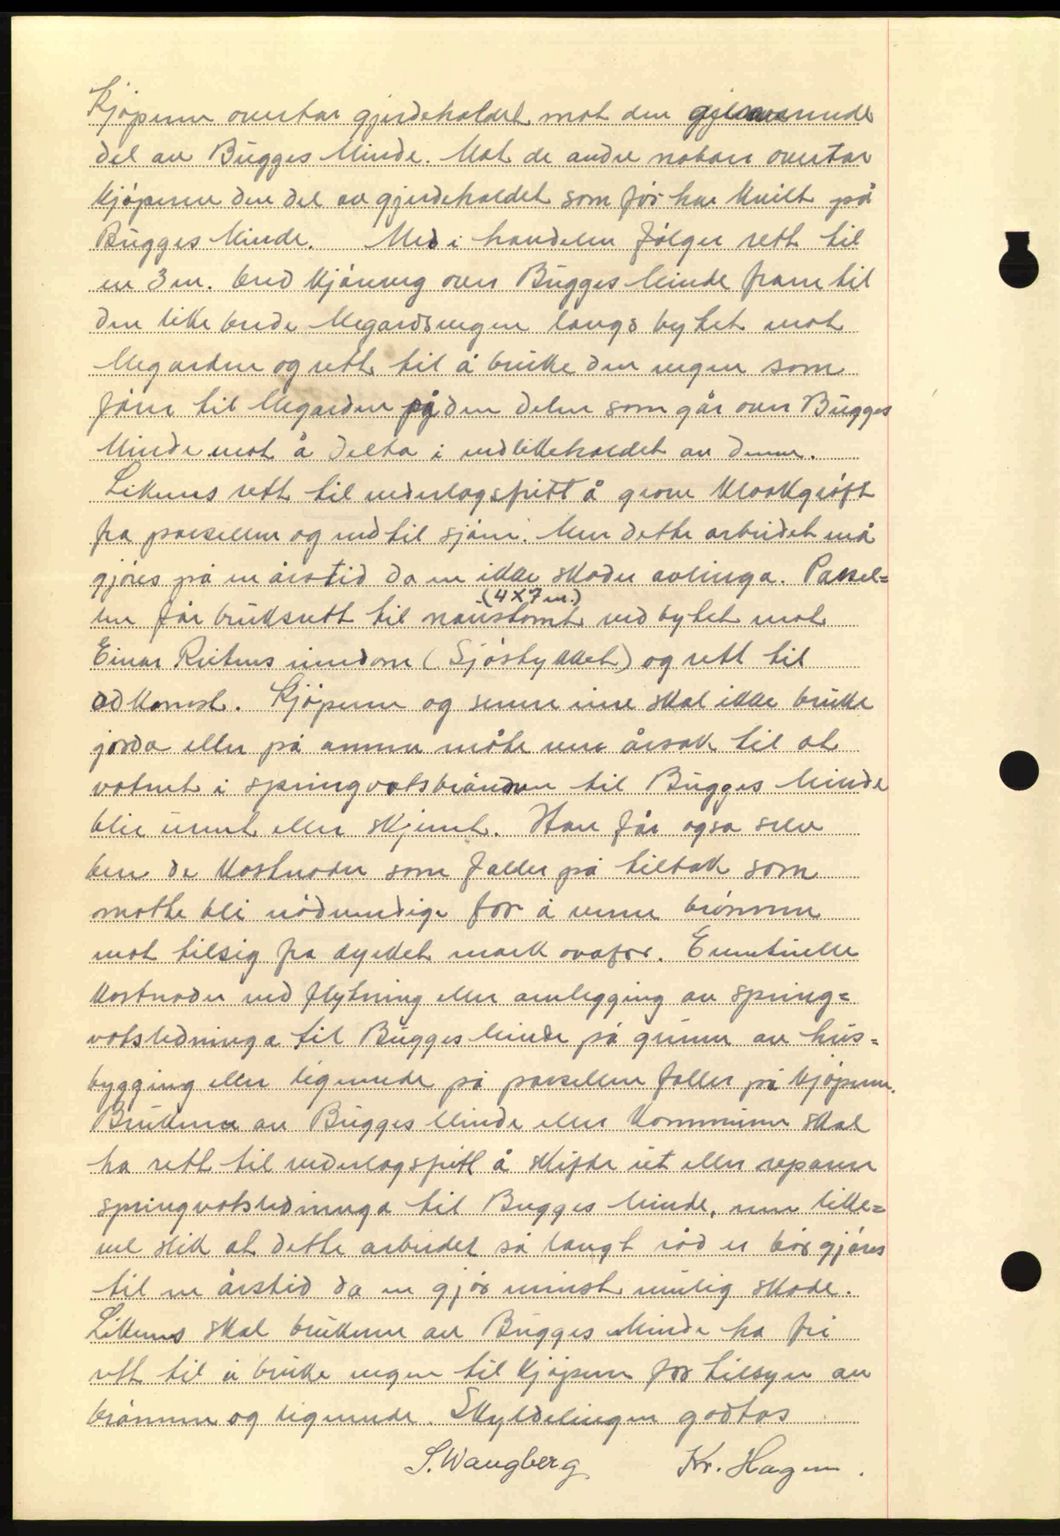 Kjøperen overtar gjerdeholdet mot den gjenværende
del av Bugges Minde. Mot de andre naboer overtar
kjøperen den del av gjerdeholdet som før har kvilt på
Bugges Minde. Med i handelen følger rett til
en 3 m. bred kjøreveg over Bugges Minde fram til
den like brede Megardsvegen langs bytet mot
Megarden og rett til å bruke den vegen som
fører til Megarden på den delen som går over Bugges
Minde mot å delta i vedlikeholdet av denne.
Likens rett til vederlagsfritt å grave kloakkgrøft
fra parsellen og ned til sjøen. Men dette arbeidet må
gjøres på en årstid da en ikke skader avlinga. Parsel=
(4 X 7 m.)
len får bruksrett til naustomt ved bytet mot
Einar eiendom (Sjøstykket) og rett til
adkomst. Kjøperen og senere eiere skal ikke bruke
jorda eller på annen måte være årsak til at
vatnet i springvatsbrønnen til Bugges Minde
blir urent eller skjemt. Han får også selv
bere de kostnader som faller på tiltak som
matte bli nødvendige for å verne brønnen
mot tilsig fra dyrket mark ovafor. Eventuelle
kostnader ved flytning eller omlegging av spring=
vatsledninga til Bugges Minde på grunn av hus=
bygging eller lignende på parsellen faller på kjøperen.
Brukeren av Bugges Minde eller kommunen skal
ha rett til vederlagsfritt å skifte ut eller reparere
springvatsledninga til Bugges Minde, men like=
vel slik at dette arbeidet så langt råd er bør gjøres
til en årstid da en gjør minst mulig skade.
Likens skal brukeren av Bugges Minde ha fri
rett til å bruke vegen til kjøperen for tilsyn av
brønnen og lignende. Skyldelingen godtas
S. Wangberg Kr. Hagen.